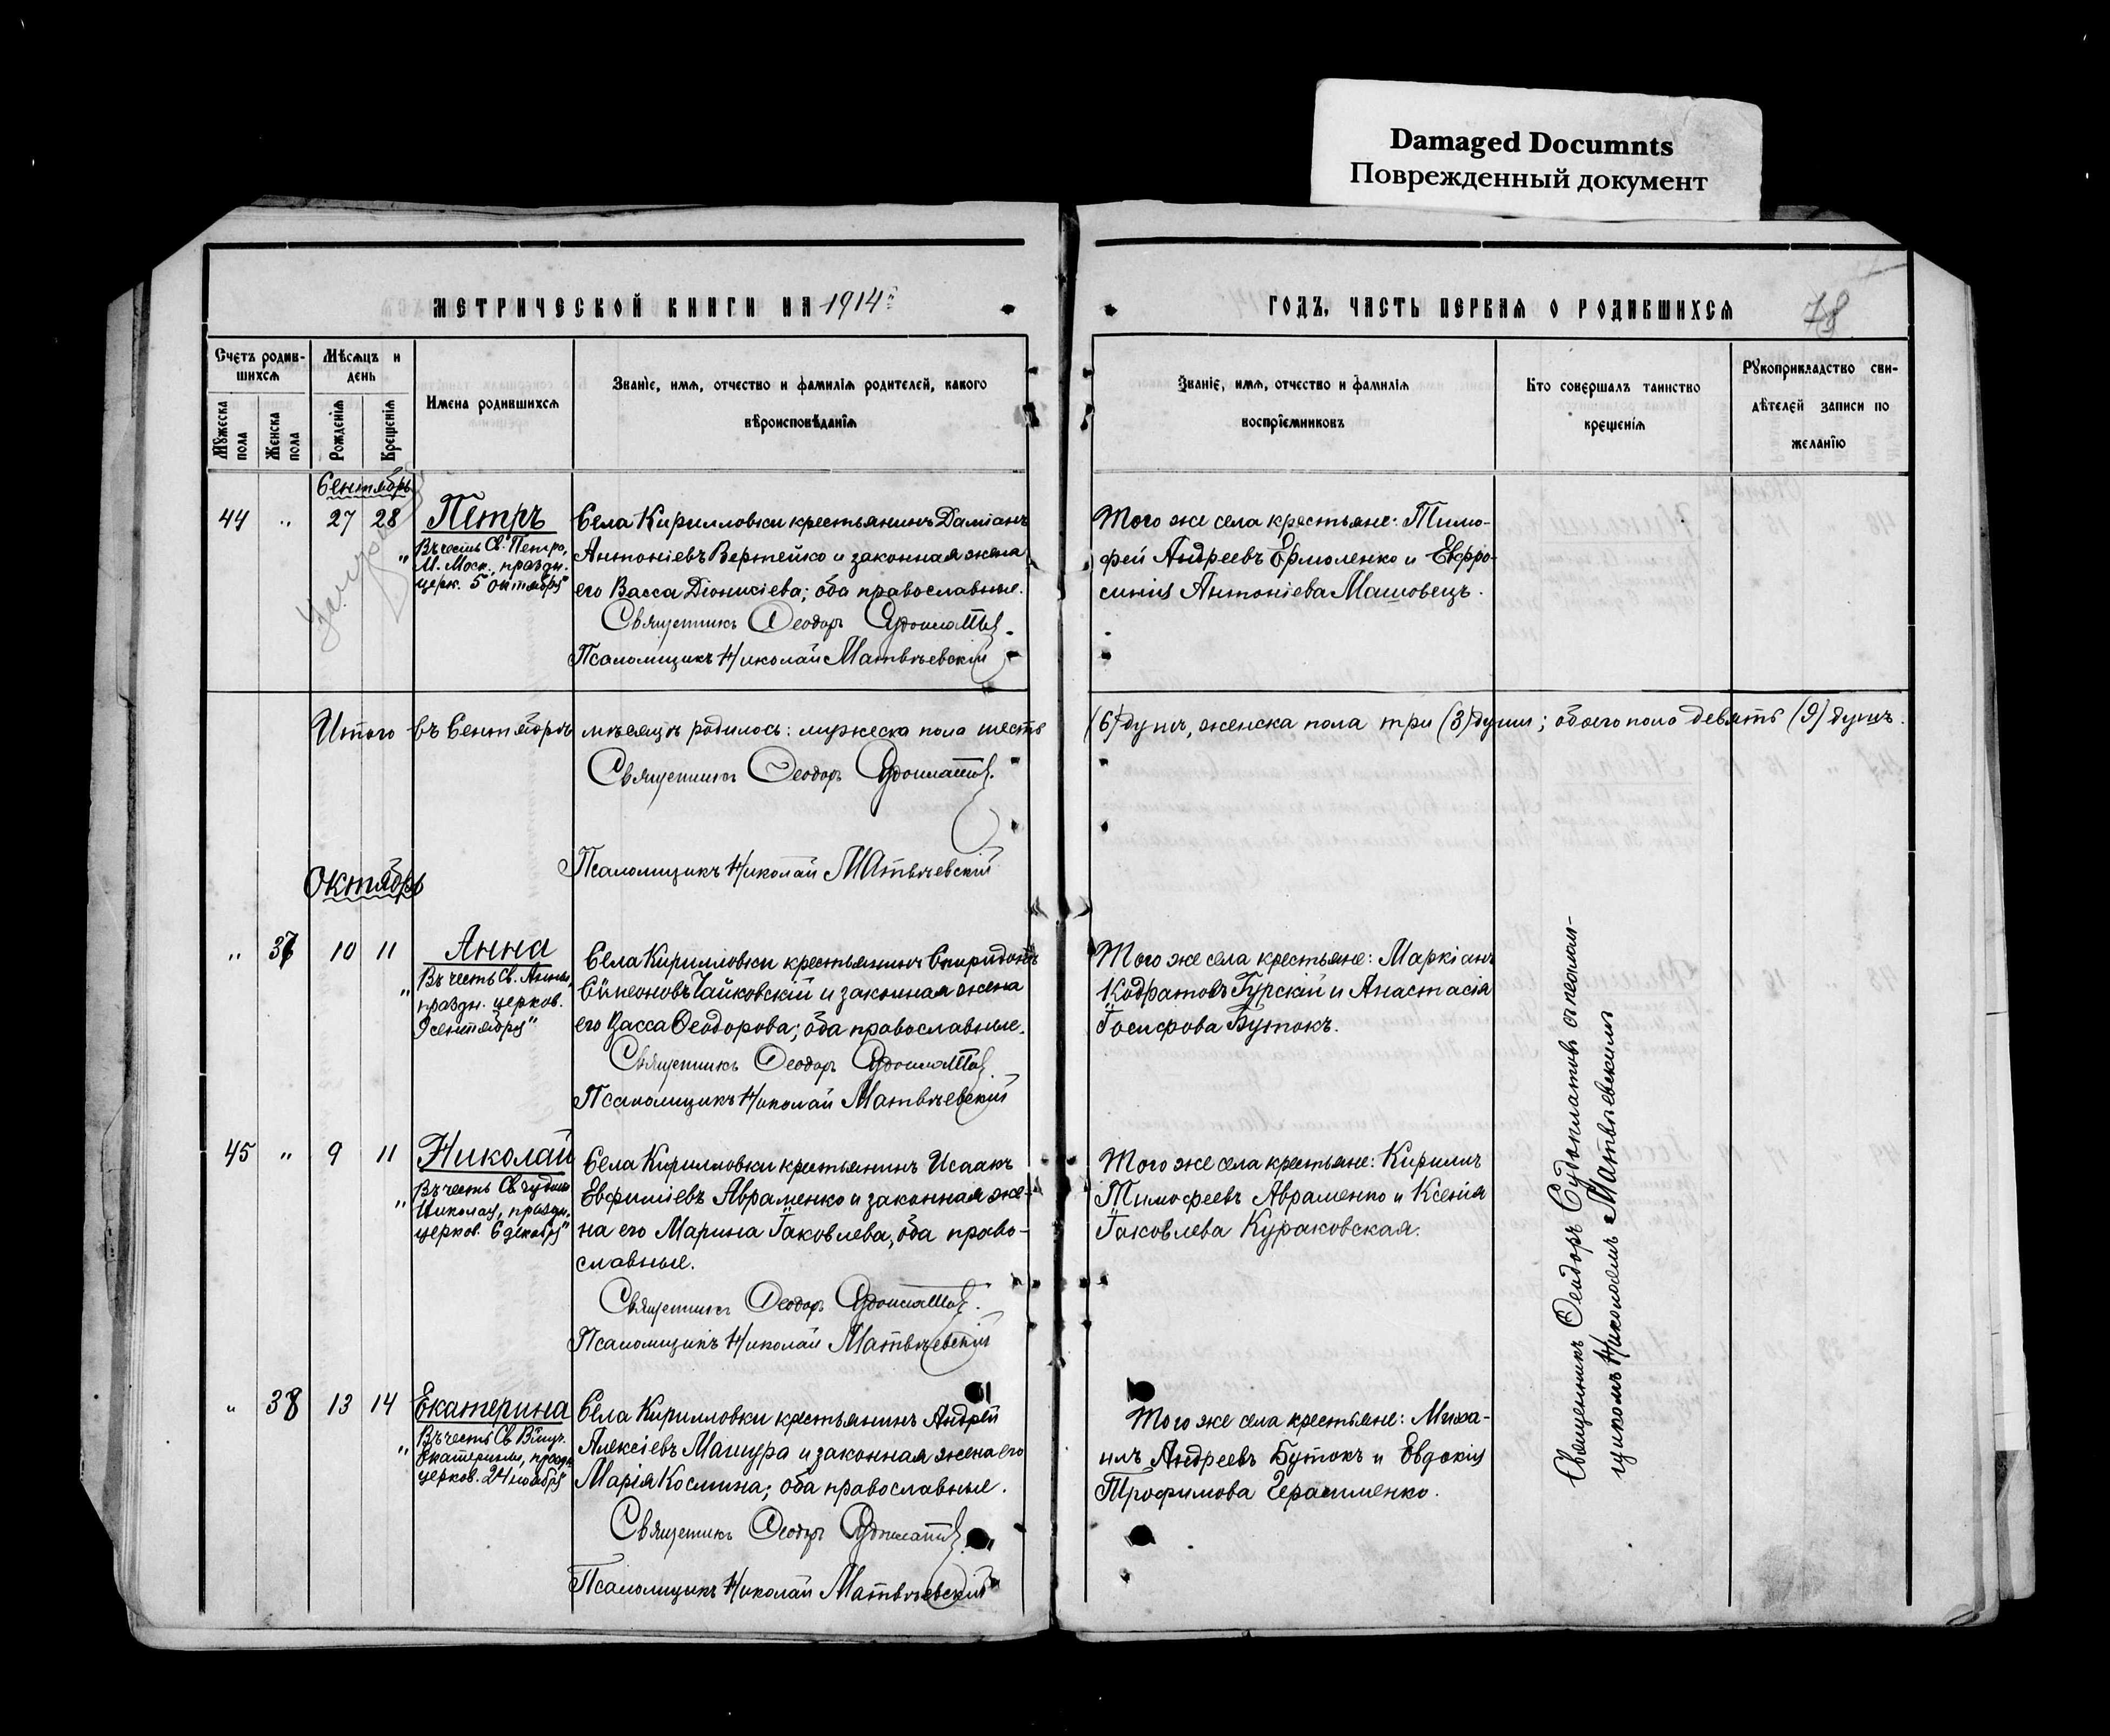 Damaged Documnts
Поврежденный документ
МЕТРИЧЕСКОЙ КНИГИ НА 1914й
ГОДЪ, ЧАСТЬ ПЕРВАЯ О РОДИВШИХСЯ
78
Счетъ родив-
шихся
Мѣсяцъ и
день
Мужеска
пола
Женска
пола
Рожденія
Крещенія
Имена родившихся
Званіе, имя, отчество и фамилія родителей, какого
вѣроисповѣданія
Званіе, имя, отчество и фамилія
воспріемниковъ
Кто совершалъ таинство
крещенія
Рукоприкладство сви-
дѣтелей записи по
желанію
Сентябрь
44 " 27 28 Петръ
"Въ честь Св. Петра,
М. Моск., праздн.
церк. 5 октября"
Села Кирилловки крестьянинъ Даміанъ
Антоніевъ Вертейко и законная жена
его Васса Діонисіева; оба православные.
Священникъ Ѳеодоръ Судоплатовъ.
Псаломщикъ Николай Матвѣевскій
Того же села крестьяне: Тимо-
фей Андреевъ Ермоленко и Евфро-
синія Антоніева Машовецъ.
Итого въ Сентябрѣ мѣсяцѣ родилось: мужеска пола шесть (6) душъ, женска пола три (3) души; обоего пола девять (9) душъ.
Священникъ Ѳеодоръ Судоплатовъ.
Псаломщикъ Николай Матвѣевскій
Октябрь
" 37 10 11 Анна
"Въ честь Св. Анны,
праздн. церков.
9 сентября"
Села Кирилловки крестьянинъ Спиридонъ
Сѵмеоновъ Чайковскій и законная жена
его Васса Ѳеодорова; оба православные.
Священникъ Ѳеодоръ Судоплатовъ.
Псаломщикъ Николай Матвѣевскій
Того же села крестьяне: Маркіанъ
Кодратовъ Гурскій и Анастасія
Іосифова Бутокъ.
45 " 9 11 Николай
"Въ честь Св. чудотв.
Николая, праздн.
церков. 6 декабря"
Села Кирилловки крестьянинъ Исаакъ
Евфиміевъ Авраменко и законная же-
на его Марина Іаковлева, оба право-
славные.
Священникъ Ѳеодоръ Судоплатовъ.
Псаломщикъ Николай Матвѣевскій
Того же села крестьяне: Кириллъ
Тимофеевъ Авраменко и Ксенія
Іаковлева Кураковская.
" 38 13 14 Екатерина
"Въ честь Св. Вмуч.
Екатерины, праздн.
церков. 24 ноября"
Села Кирилловки крестьянинъ Андрей
Алексіевъ Машура и законная жена его
Марія Космина; оба православные.
Священникъ Ѳеодоръ Судоплатовъ.
Псаломщикъ Николай Матвѣевскій
Того же села крестьяне: Миха-
илъ Андреевъ Бутокъ и Евдокія
Трофимова Герасименко.
Священникъ Ѳеодоръ Судоплатовъ съ псалом-
щикомъ Николаемъ Матвѣевскимъ